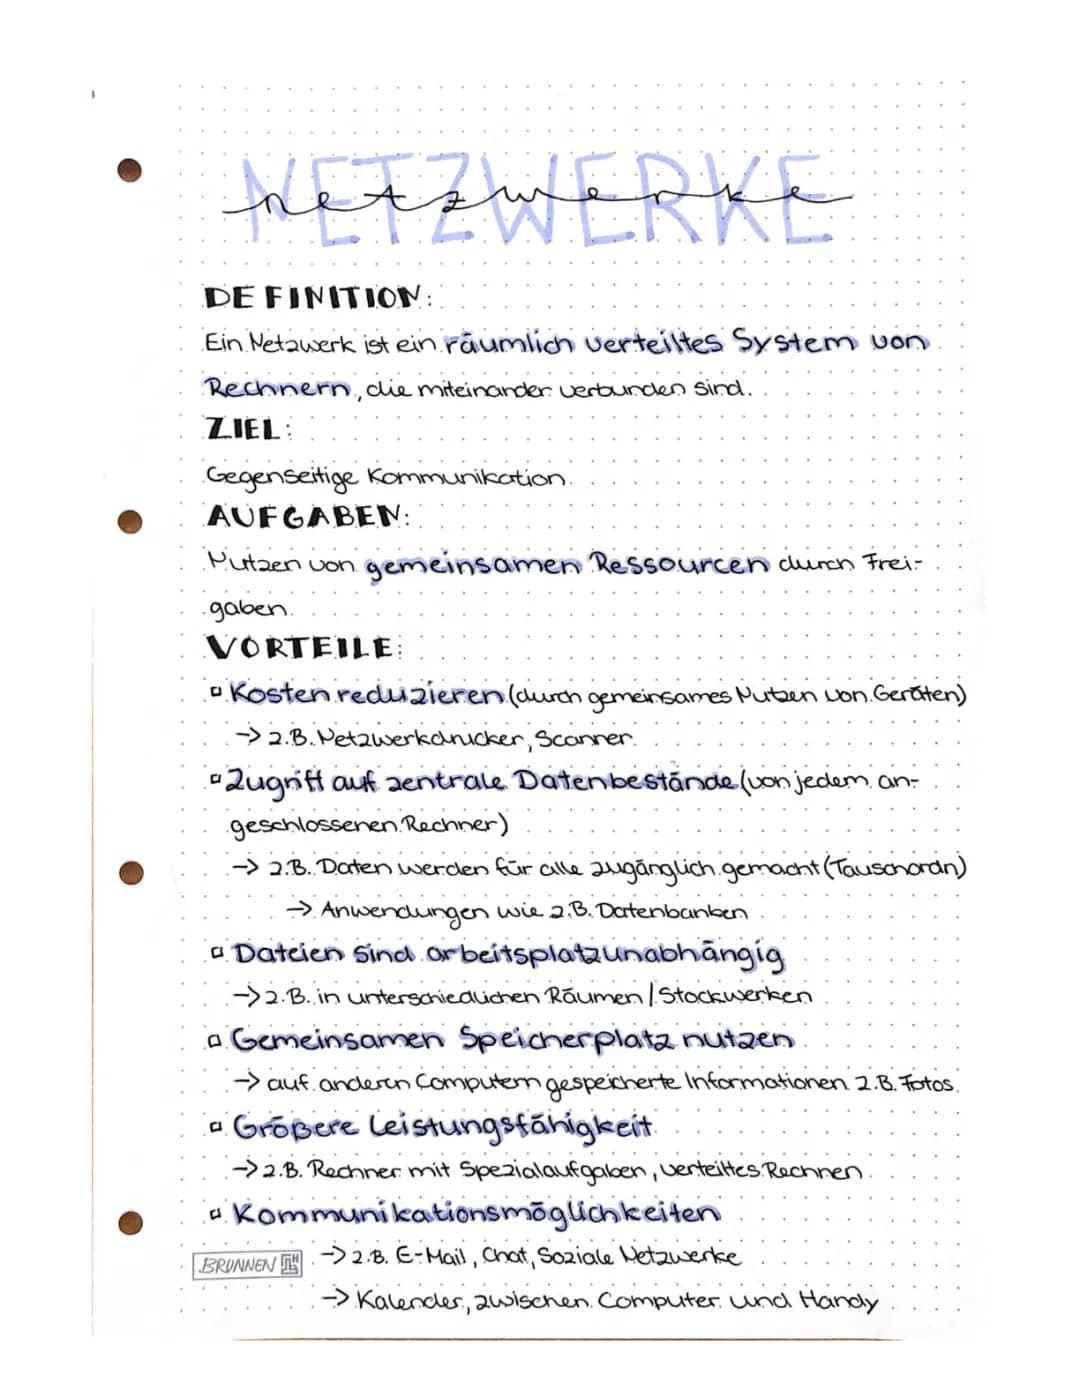 NETZWERKE
netzwerke
DEFINITION:
Ein Netzwerk ist ein räumlich verteiltes System von
Rechnern, die miteinander verbunden sind.
ZIEL:
Gegenseitige Kommunikation.
AUFGABEN:
Nutzen von gemeinsamen Ressourcen durch Frei-
gaben.
VORTEILE:
▫ Kosten reduzieren (durch gemeinsames Nutzen von Geräten)
→ z.B. Netzwerkdrucker, Scanner.
▫ Zugriff auf zentrale Datenbestände (von jedem an-
geschlossenen Rechner)
→ z.B. Daten werden für alle zugänglich gemacht (Tauschordn)
→ Anwendungen wie z.B. Datenbanken
▫ Dateien sind arbeitsplatzunabhängig
→ z.B. in unterschiedlichen Räumen / Stockwerken
▫ Gemeinsamen Speicherplatz nutzen
→ auf anderen Computern gespeicherte Informationen z.B. Fotos.
▫ Größere Leistungsfähigkeit
→ z.B. Rechner mit Spezialaufgaben, verteiltes Rechnen
▫ Kommunikationsmöglichkeiten
→ z.B. E-Mail, Chat, Soziale Netzwerke
BRUNNEN
→ Kalender, zwischen Computer und Handy